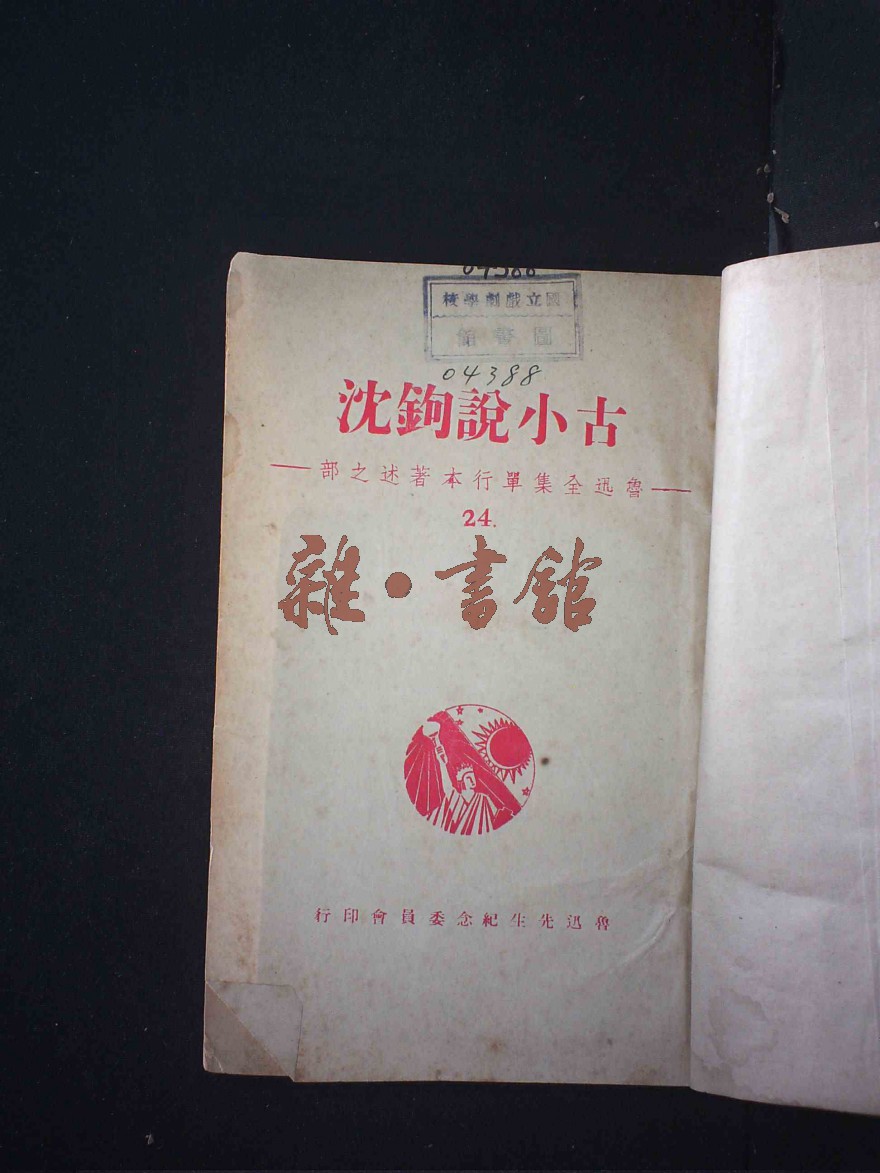 04388
國立戲劇學校
圖書館
04388
古小說鉤沈
——魯迅全集單行本著述之部——
24.
雜·書館
魯迅先生紀念委員會印行